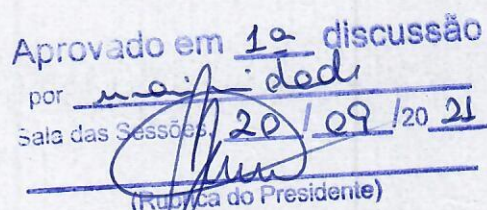 Aprovado em 1ª discussão
por unanimidade
Sala das Sessões, 20 / 09 /20 21
(Rubrica do Presidente)